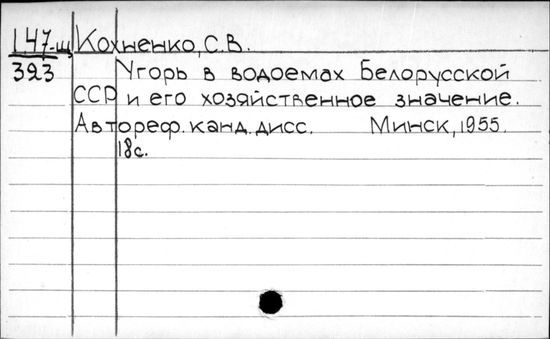 147-щ Кохненко, С.В.
323 Угорь в водоемах Белорусской
ССР и его хозяйственное значение.
Автореф. канд. дисс. Минск, 1955.
18с.